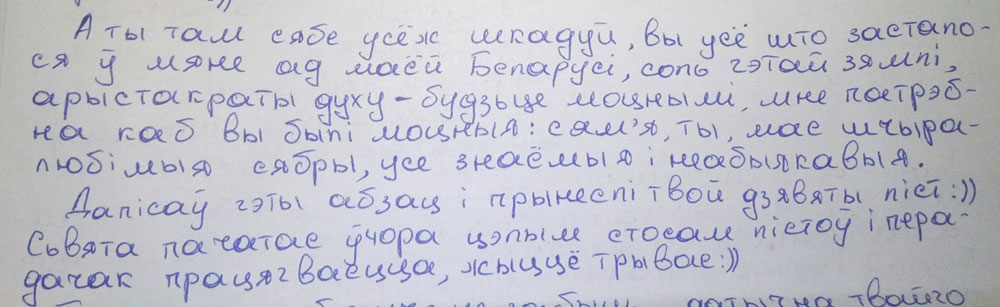 А ты там сябе усёж шкадуй, вы усё што застало-
ся ў мяне ад маёй Беларусі, соль гэтай зямлі,
арыстакраты духу - будзьце моцнымі, мне патрэб-
на каб вы былі моцныя: сям'я, ты, мае шчыра-
любімыя сябры, усе знаёмыя і неабыякавыя.
Дапісаў гэты абзац і прынеслі твой дзявяты ліст:))
Сьвята пачатае ўчора цэлым стосам лістоў і пера-
дачак працягваецца, жыццё трывае:))
датычна твайго